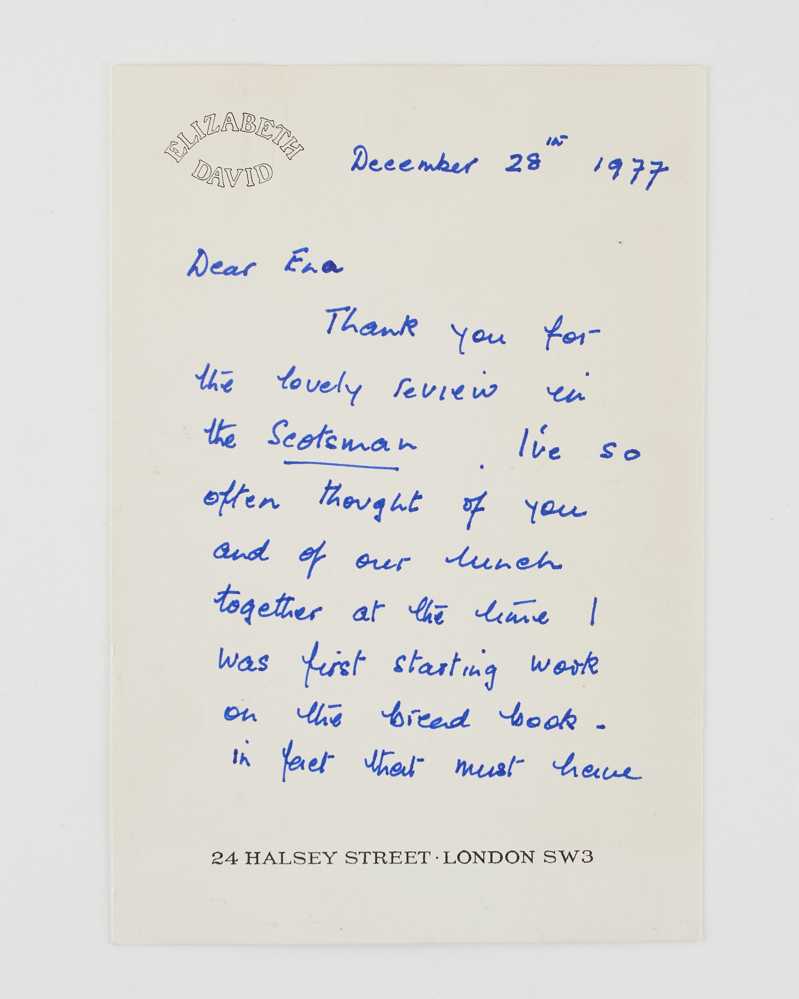 ELIZABETH
DAVID
December 28th 1977
Dear Ena
Thank you for
the lovely review in
the Scotsman. I've so
often thought of you
and of our lunch
together at the time I
was first starting work
on the bread book -
in fact that must have
24 HALSEY STREET · LONDON SW3